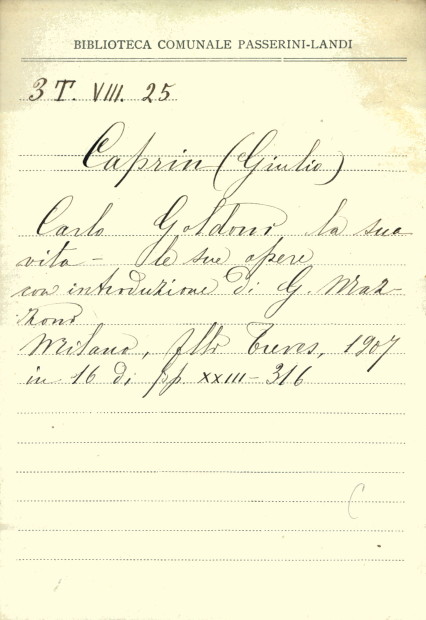 BIBLIOTECA COMUNALE PASSERINI-LANDI
3 T. VIII. 25
Caprin (Giulio)
Carlo Goldoni la sua
vita - le sue opere
con introduzione di G. Maz-
zoni
Milano, flli Treves, 1907
in 16 di pp XXIII-316